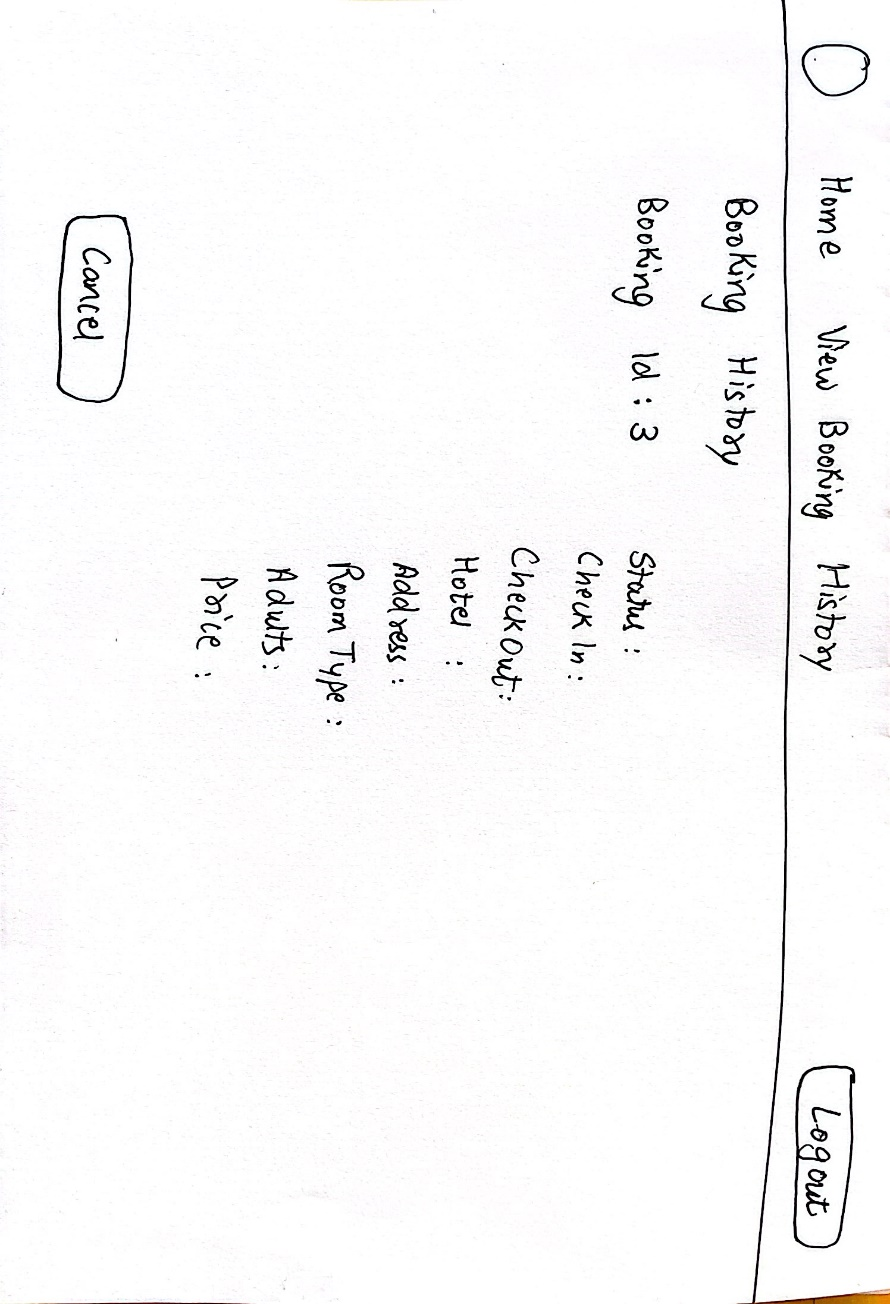 Home View Booking History Logout
Booking History
Booking Id : 3
Status :
Check In :
CheckOut :
Hotel :
Address :
Room Type :
Adults :
Price :
Cancel